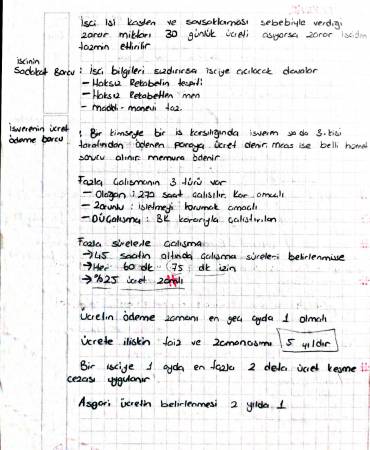 İşçi işi kasden ve savsaklaması sebebiyle verdiği
zarar miktarı 30 günlük ücreti aşıyorsa zarar işçiden
tazmin ettirilir
işçinin
Sadakat Borcu : işçi bilgileri sızdırırsa işçiye açılacak davalar
- Haksız Rekabetin tespiti
- Haksız Rekabetten men
- maddi-manevi taz.
işverenin ücret
ödeme borcu : Bir kimseye bir iş karşılığında işveren ya da 3. kişi
tarafından ödenen paraya ücret denir. maaş ise belli hizmet
sonucu alınır memura ödenir
Fazla Çalışmanın 3 türü var
- Olağan : 270 saat çalışılır. Kar amaçlı
- Zorunlu : işletmeyi korumak amaçlı
- OÜ Çalışma : BK kararıyla çalıştırılan
Fazla sürelerle Çalışma
→ 45 saatin altında çalışma süreleri belirlenmişse
→ Her 60 dk (75) dk izin
→ %25 ücret zamlı
ücretin ödeme zamanı en geç ayda 1 olmalı
ücrete ilişkin faiz ve zamanaşımı 5 yıldır
Bir işçiye 1 ayda en fazla 2 defa ücret kesme
cezası uygulanır
Asgari ücretin belirlenmesi 2 yılda 1